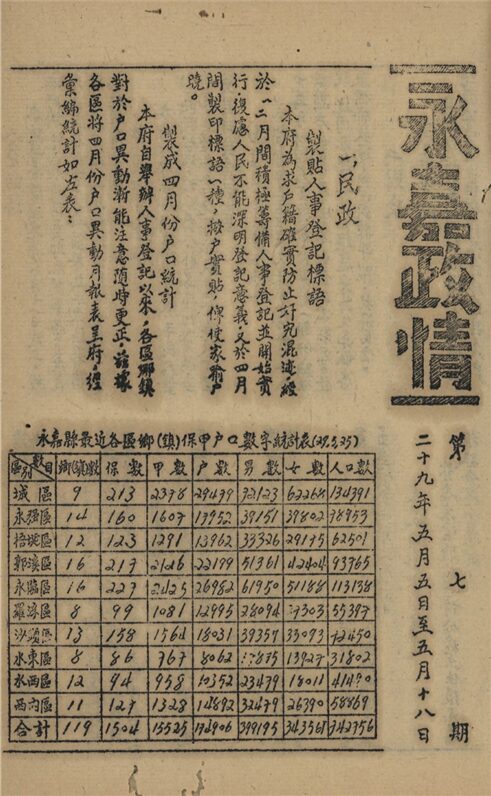 永嘉政情
第七期
二十九年五月五日至五月十八日
一、民政
製貼人事登記標語
本府為求戶籍確實防止奸宄混迹,經
於一二月間積極籌備人事登記並開始實
行,復慮人民不能深明登記意義,又於四月
間製印標語一種,按戶實貼,俾使家喻戶
曉。
製成四月份戶口統計
本府自舉辦人事登記以來,各區鄉鎮
對於戶口異動漸能注意隨時更正,茲據
各區將四月份戶口異動月報表呈府,經
彙編統計如左表:
永嘉縣最近各區鄉(鎮)保甲戶口數字統計表(29,5,25)
區別 數目 鄉(鎮)數 保數 甲數 戶數 男數 女數 人口數
城區 9 213 2378 29479 72123 62268 134391
永強區 14 160 1607 39151 39802 78953
梧埏區 12 123 1291 13962 33326 29175 62501
郭溪區 16 217 2146 22179 51361 42404 93765
永臨區 16 227 2425 26982 61950 51188 113138
羅浮區 8 99 1081 12995 28094 27303 55397
沙頭區 13 158 1564 18031 39357 33093 72450
永東區 8 86 767 8062 17875 13927 31802
永西區 12 94 958 10352 23479 18011 41490
西內區 11 127 1328 14892 32479 26390 58869
合計 119 1504 15525 174906 399195 343561 742756